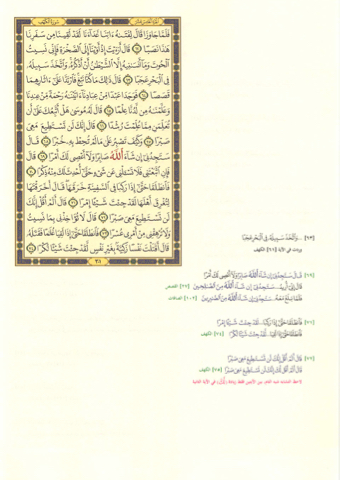 الجزء الخامس عشر سورة الكهف
فَلَمَّا جَاوَزَا قَالَ لِفَتَىٰهُ ءَاتِنَا غَدَآءَنَا لَقَدْ لَقِينَا مِن سَفَرِنَا
هَٰذَا نَصَبًا ٦٢ قَالَ أَرَءَيْتَ إِذْ أَوَيْنَآ إِلَى ٱلصَّخْرَةِ فَإِنِّى نَسِيتُ
ٱلْحُوتَ وَمَآ أَنسَىٰنِيهُ إِلَّا ٱلشَّيْطَٰنُ أَنْ أَذْكُرَهُۥ وَٱتَّخَذَ سَبِيلَهُۥ
فِى ٱلْبَحْرِ عَجَبًا ٦٣ قَالَ ذَٰلِكَ مَا كُنَّا نَبْغِ فَٱرْتَدَّا عَلَىٰٓ ءَاثَارِهِمَا
قَصَصًا ٦٤ فَوَجَدَا عَبْدًا مِّنْ عِبَادِنَآ ءَاتَيْنَٰهُ رَحْمَةً مِّنْ عِندِنَا
وَعَلَّمْنَٰهُ مِن لَّدُنَّا عِلْمًا ٦٥ قَالَ لَهُۥ مُوسَىٰ هَلْ أَتَّبِعُكَ عَلَىٰٓ أَن
تُعَلِّمَنِ مِمَّا عُلِّمْتَ رُشْدًا ٦٦ قَالَ إِنَّكَ لَن تَسْتَطِيعَ مَعِىَ
صَبْرًا ٦٧ وَكَيْفَ تَصْبِرُ عَلَىٰ مَا لَمْ تُحِطْ بِهِۦ خُبْرًا ٦٨ قَالَ
سَتَجِدُنِىٓ إِن شَآءَ ٱللَّهُ صَابِرًا وَلَآ أَعْصِى لَكَ أَمْرًا ٦٩ قَالَ
فَإِنِ ٱتَّبَعْتَنِى فَلَا تَسْـَٔلْنِى عَن شَىْءٍ حَتَّىٰٓ أُحْدِثَ لَكَ مِنْهُ ذِكْرًا ٧٠
فَٱنطَلَقَا حَتَّىٰٓ إِذَا رَكِبَا فِى ٱلسَّفِينَةِ خَرَقَهَا قَالَ أَخَرَقْتَهَا
لِتُغْرِقَ أَهْلَهَا لَقَدْ جِئْتَ شَيْـًٔا إِمْرًا ٧١ قَالَ أَلَمْ أَقُلْ إِنَّكَ
لَن تَسْتَطِيعَ مَعِىَ صَبْرًا ٧٢ قَالَ لَا تُؤَاخِذْنِى بِمَا نَسِيتُ
وَلَا تُرْهِقْنِى مِنْ أَمْرِى عُسْرًا ٧٣ فَٱنطَلَقَا حَتَّىٰٓ إِذَا لَقِيَا غُلَٰمًا فَقَتَلَهُۥ
قَالَ أَقَتَلْتَ نَفْسًا زَكِيَّةًۢ بِغَيْرِ نَفْسٍ لَّقَدْ جِئْتَ شَيْـًٔا نُّكْرًا ٧٤
٣٠١
[٦٣] ...وَٱتَّخَذَ سَبِيلَهُۥ فِى ٱلْبَحْرِ عَجَبًا
وردت في الآية [٦١] الكهف
[٦٩] قَالَ سَتَجِدُنِىٓ إِن شَآءَ ٱللَّهُ صَابِرًا وَلَآ أَعْصِى لَكَ أَمْرًا
قَالَ إِنِّىٓ أُرِيدُ... سَتَجِدُنِىٓ إِن شَآءَ ٱللَّهُ مِنَ ٱلصَّٰلِحِينَ [٢٧] القصص
فَلَمَّا بَلَغَ مَعَهُ... سَتَجِدُنِىٓ إِن شَآءَ ٱللَّهُ مِنَ ٱلصَّٰبِرِينَ [١٠٢] الصافات
[٧١] فَٱنطَلَقَا حَتَّىٰٓ إِذَا رَكِبَا... لَقَدْ جِئْتَ شَيْـًٔا إِمْرًا
فَٱنطَلَقَا حَتَّىٰٓ إِذَا لَقِيَا... لَّقَدْ جِئْتَ شَيْـًٔا نُّكْرًا [٧٤] الكهف
[٧٢] قَالَ أَلَمْ أَقُلْ إِنَّكَ لَن تَسْتَطِيعَ مَعِىَ صَبْرًا
قَالَ أَلَمْ أَقُل لَّكَ إِنَّكَ لَن تَسْتَطِيعَ مَعِىَ صَبْرًا [٧٥] الكهف